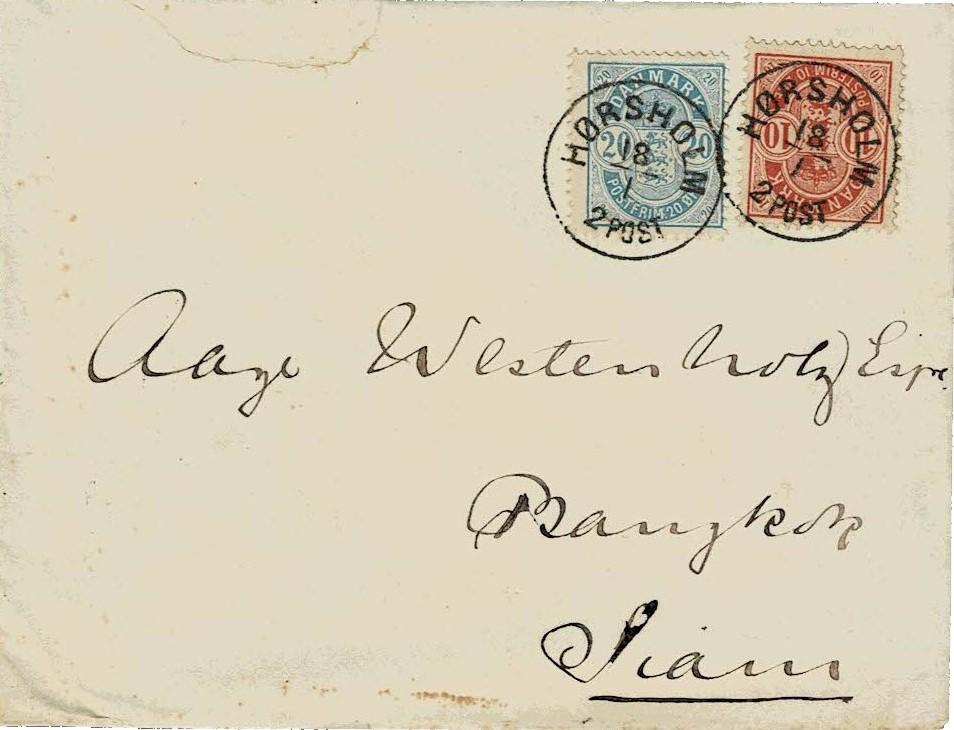 20 DANMARK 20
20 20
POSTFRIM. 20 ØRE 20
HØRSHOLM
18
1
2 POST
10 POSTFRIM 10
10 10
DANMARK
HØRSHOLM
18
1
2 POST
Aage Westenholz Esqre.
Bangkok
Siam